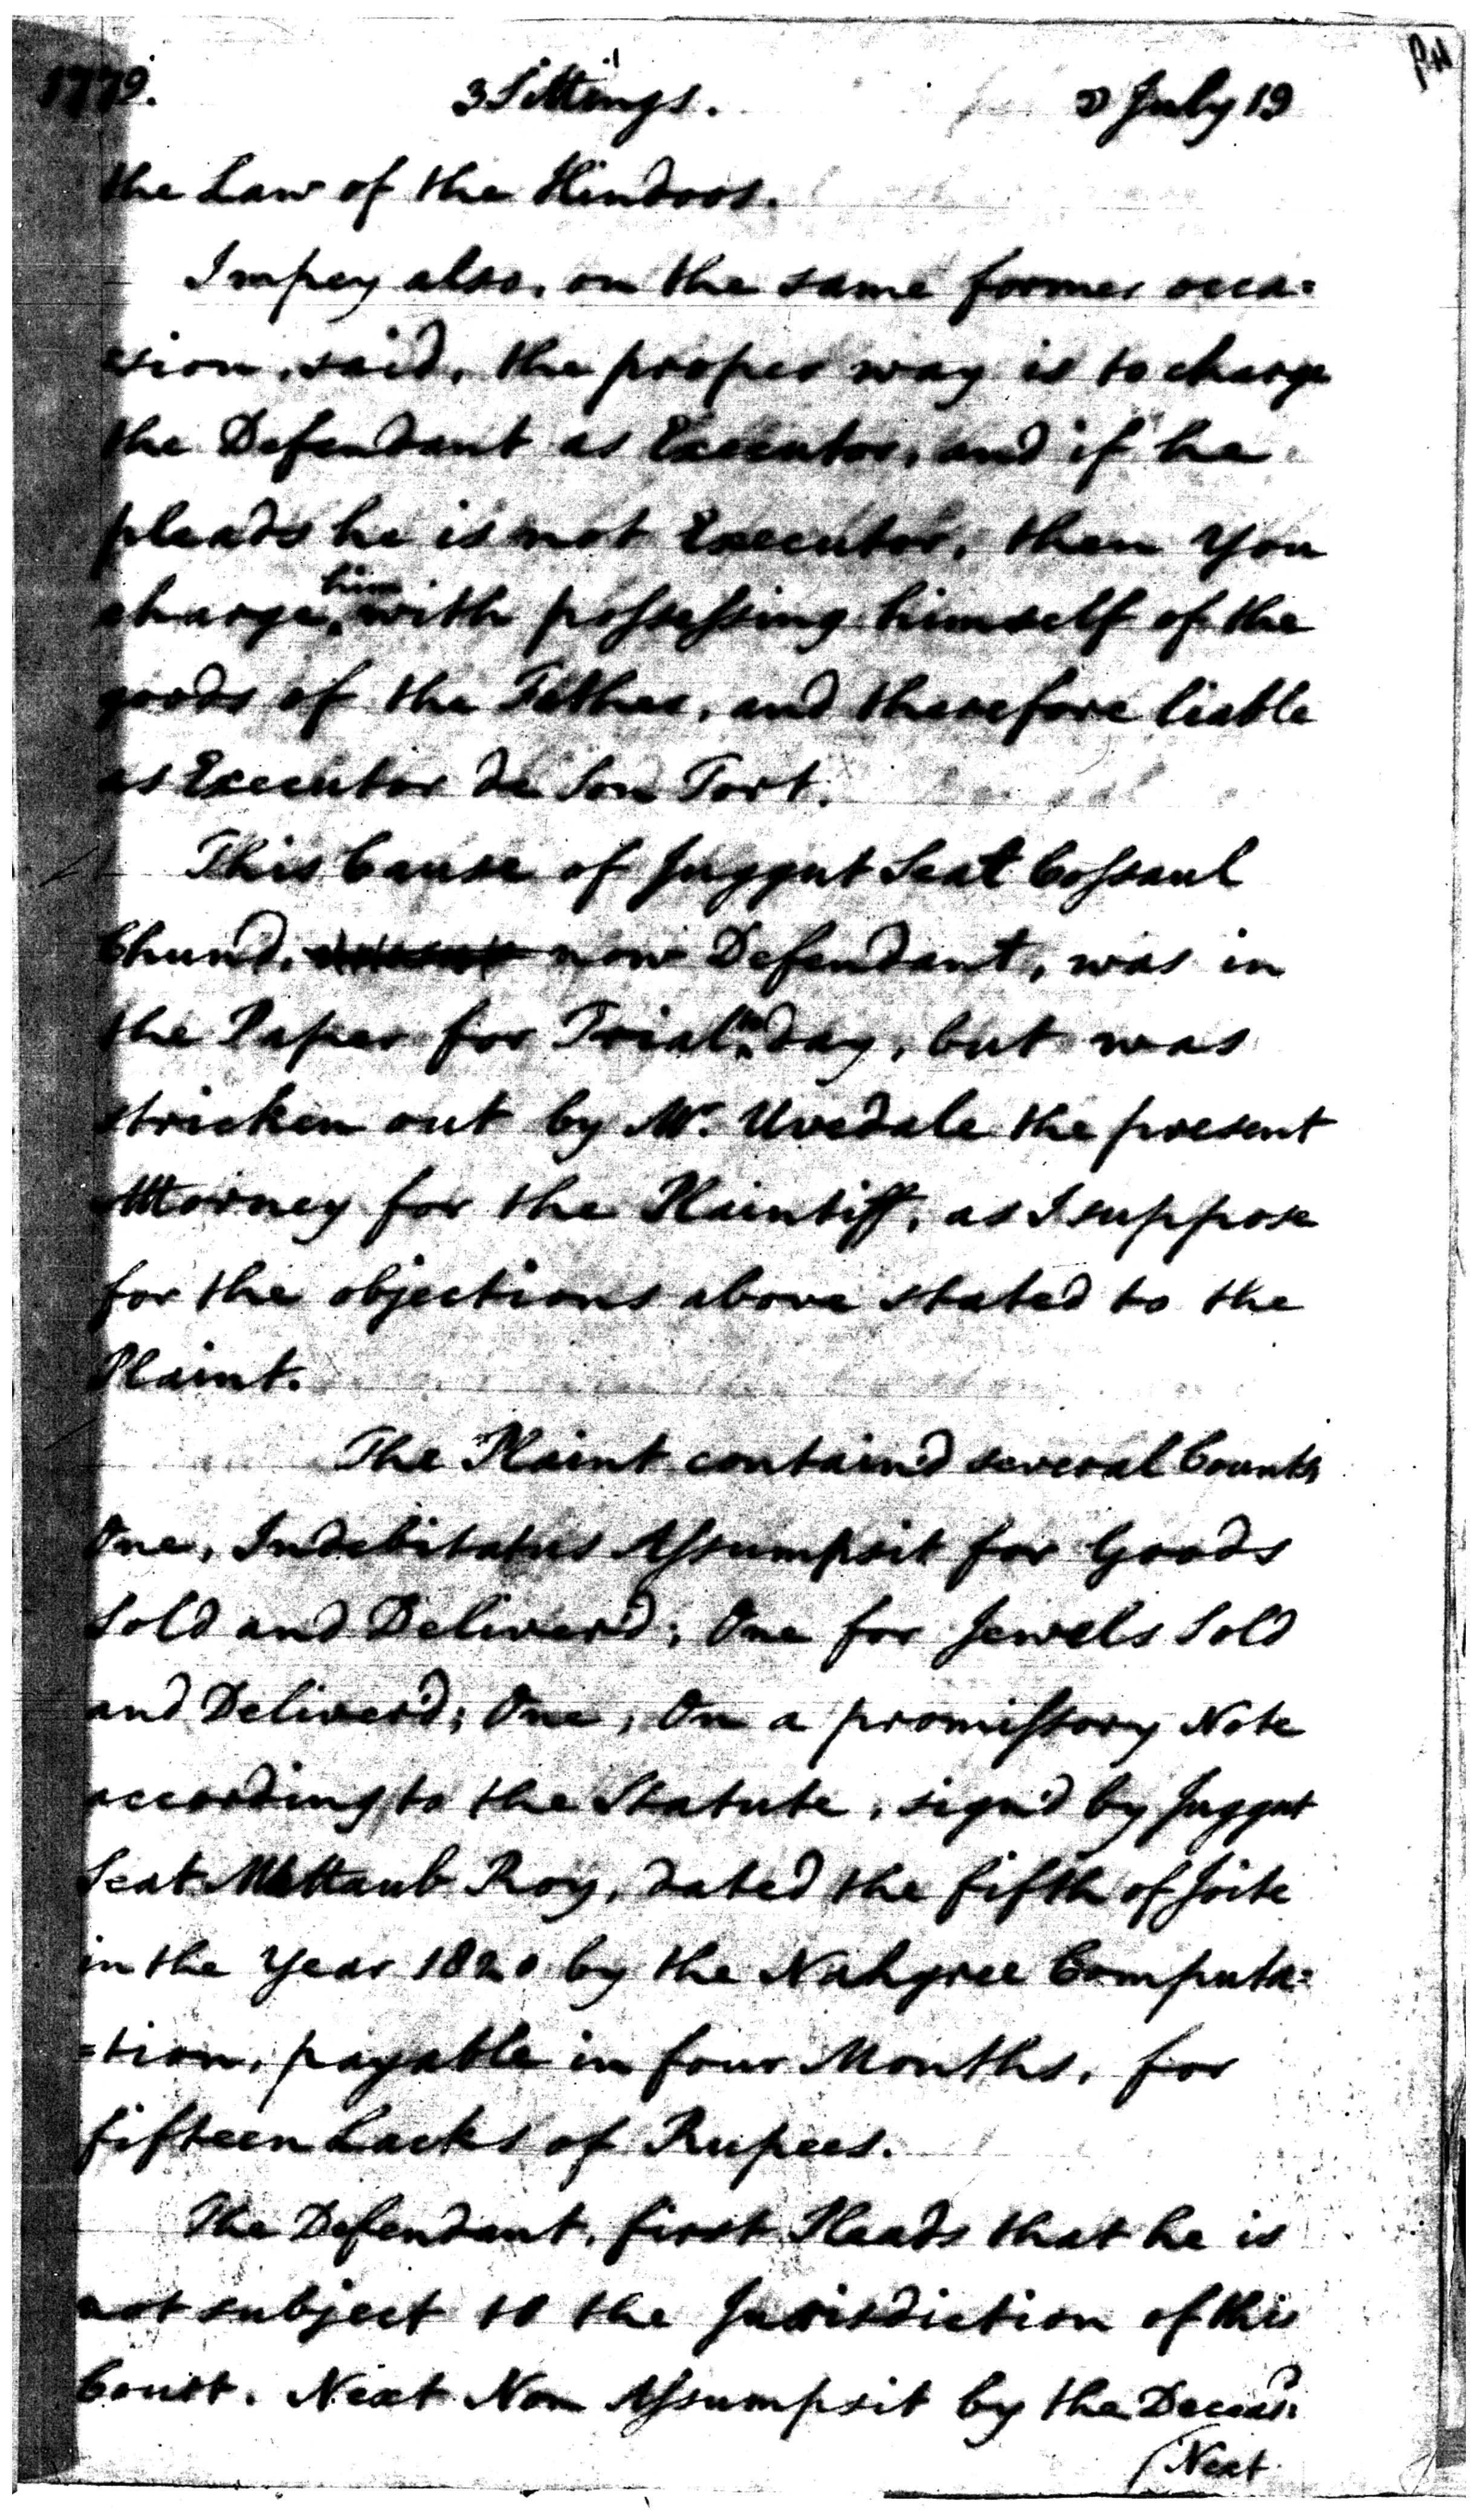 1779. 3 Sittings. July 19
the Law of the Hindoos.
Impey also, on the same former occa=
sion, said, the proper way is to charge
the Defendant as Executor, and if he
pleads he is not Executor, then you
charge him with possessing himself of the
goods of the Father, and therefore liable
as Executor de Son Tort.
This Cause of Juggut Seat Cossaul
Chund, now Defendant, was in
the Paper for Trial to day, but was
stricken out by Mr. Uvedale the present
Attorney for the Plaintiff, as I suppose
for the objections above stated to the
Plaint.
The Plaint contain'd several Counts
One, Indebitatus Assumpsit for Goods
Sold and Deliver'd; One for Jewels Sold
and Deliver'd; One, On a promissory Note
according to the Statute, sign'd by Juggut
Seat Mattaub Roy, dated the fifth of Joite
in the Year 1820 by the Nahgree Computa=
=tion, payable in four Months, for
fifteen Lacks of Rupees.
The Defendant, first Pleads that he is
not subject to the Jurisdiction of this
Court. Next Non Assumpsit by the Deceas'd
Next